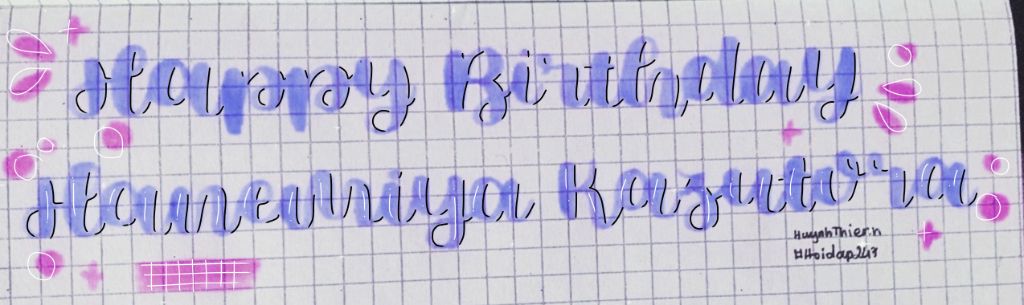 Happy Birthday
Hanemiya Kazutora
#HuynhThien
#Hoidap247